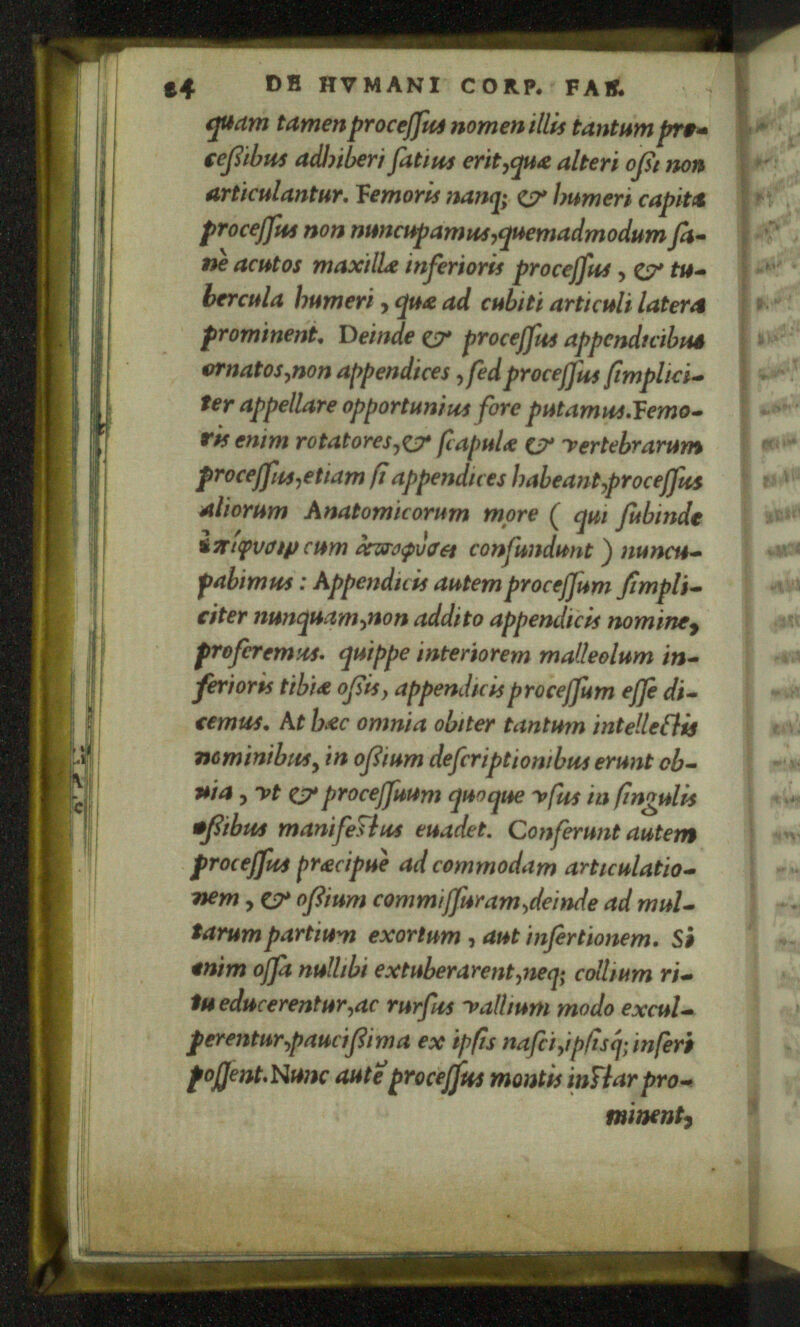 84 DE HVMANI CORP. FAB.
quam tamen processus nomen illis tantum pro-
cessibus adhiberi satius erit, quæ alteri ossi non
articulantur. Femoris nanq; & humeri capita
processus non nuncupamus, quemadmodum sa-
ne acutos maxillæ inferioris processus, & tu-
bercula humeri, quæ ad cubiti articuli latera
prominent. Deinde & processus appendicibus
ornatos, non appendices, sed processus simplici-
ter appellare opportunius fore putamus. Femo-
ris enim rotatores, & scapulæ & vertebrarum
processus, etiam si appendices habeant, processus
aliorum Anatomicorum more ( qui subinde
ἐπίφυσιν cum ἀποφύσει confundunt ) nuncu-
pabimus : Appendicis autem processum simpli-
citer nunquam, non addito appendicis nomine,
proferemus. quippe interiorem malleolum in-
ferioris tibiæ ossis, appendicis processum esse di-
cemus. At hæc omnia obiter tantum intellectis
nominibus, in ossium descriptionibus erunt ob-
uia, vt & processuum quoque vsus in singulis
ossibus manifestus euadet. Conferunt autem
processus præcipuè ad commodam articulatio-
nem, & ossium commissuram, deinde ad mul-
tarum partium exortum, aut insertionem. Si
enim ossa nullibi extuberarent, neq; collium ri-
tu educerentur, ac rursus vallium modo excul-
perentur, paucissima ex ipsis nasci, ipsisq; inseri
possent. Nunc autẽ processus montis instar pro-
minent,